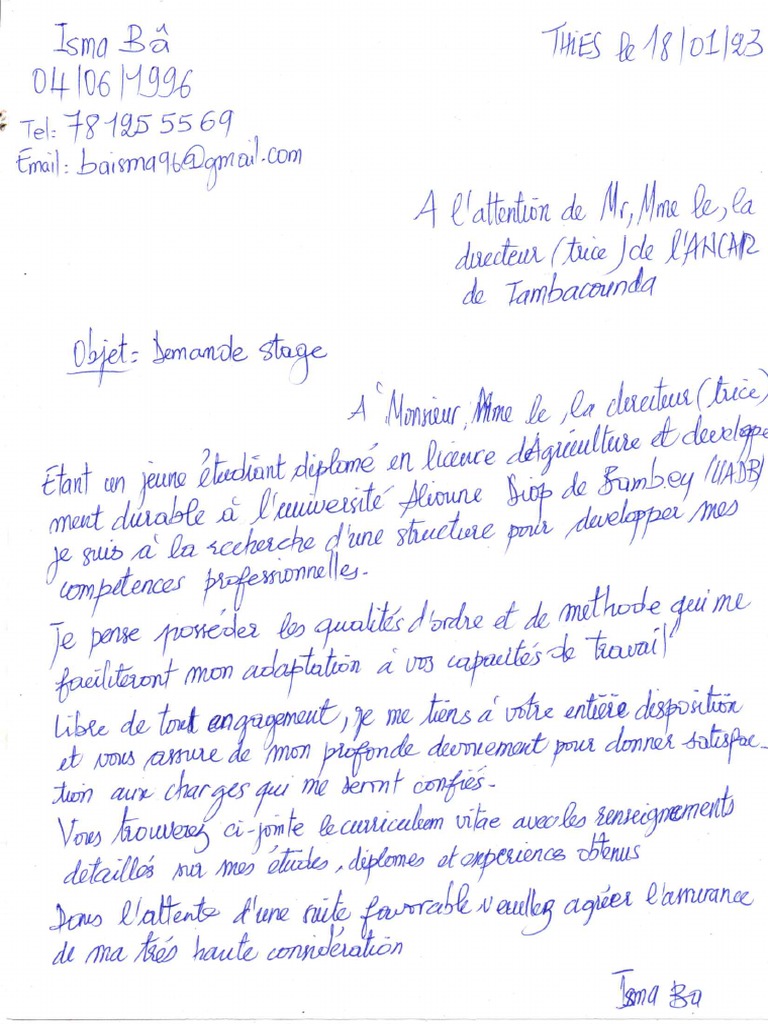 Isma Bâ
04/06/1996
Tel: 78 125 55 69
Email: baisma96@gmail.com
THIES le 18/01/23
A l'attention de Mr, Mme le, la
directeur (trice) de l'ANCAR
de Tambacounda
Objet= Demande stage
A Monsieur, Mme le, la directeur (trice)
Etant un jeune étudiant diplomé en licence d'Agriculture et developpe
ment durable à l'université Alioune Diop de Bambey (UADB)
je suis à la recherche d'une structure pour developper mes
compétences professionnelles.
Je pense posséder les qualités d'ordre et de methode qui me
faciliteront mon adaptation à vos capacités de travail
Libre de tout engagement, je me tiens à votre entière disposition
et vous assure de mon profonde devouement pour donner satisfac-
tion aux charges qui me seront confiés.
Vous trouverez ci-jointe le curriculum vitae avec les renseignements
detaillés sur mes études, diplomes et experience obtenus
Dans l'attente d'une suite favorable veuillez agréer l'assurance
de ma trés haute considération
Isma Ba